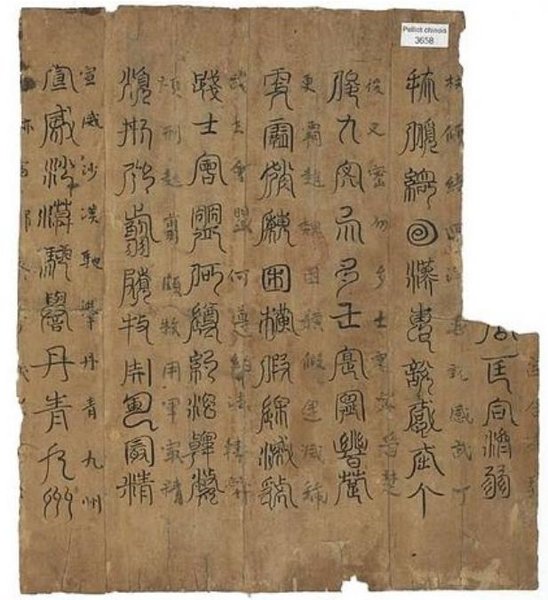 Pelliot chinois
3658
公匡合濟弱
扶傾綺迴漢惠說感武丁
扶傾綺迴漢惠說感武丁
俊乂密勿多士寔寧晉楚
俊乂密勿多士寔寧晉楚
更霸趙魏困橫假途滅虢
更霸趙魏困橫假途滅虢
踐土會盟何遵約法韓弊
踐土會盟何遵約法韓弊
煩刑起翦頗牧用軍最精
煩刑起翦頗牧用軍最精
宣威沙漠馳譽丹青九州
宣威沙漠馳譽丹青九州